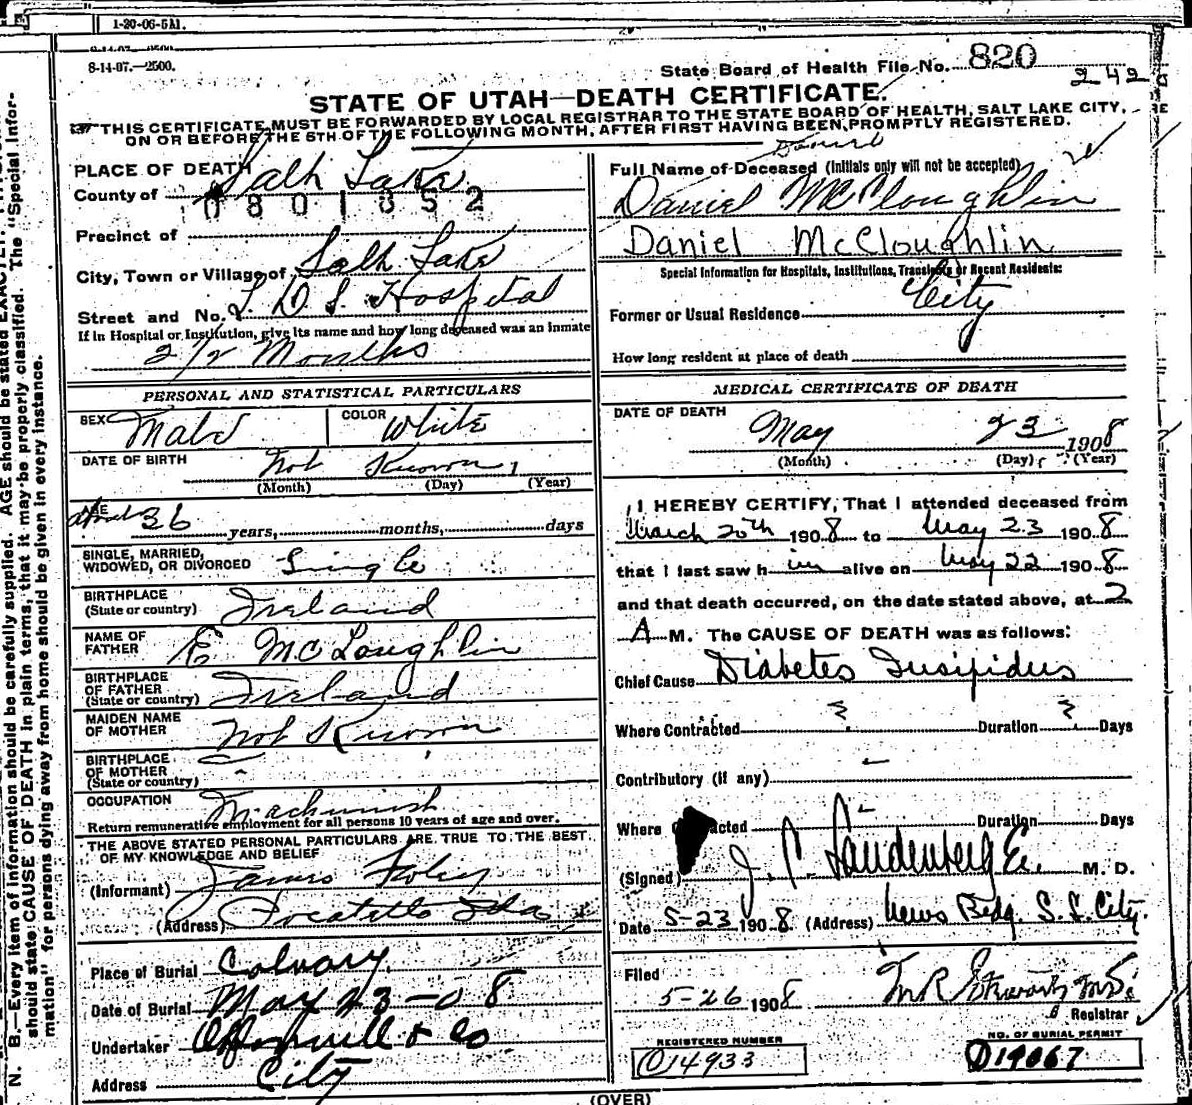 1-20-06-5M.
8-14-07.—2500.
State Board of Health File No. 820
242
STATE OF UTAH—DEATH CERTIFICATE.
THIS CERTIFICATE MUST BE FORWARDED BY LOCAL REGISTRAR TO THE STATE BOARD OF HEALTH, SALT LAKE CITY,
ON OR BEFORE THE 5TH OF THE FOLLOWING MONTH, AFTER FIRST HAVING BEEN PROMPTLY REGISTERED.
PLACE OF DEATH
County of Salt Lake
0801352
Precinct of
City, Town or Village of Salt Lake
Street and No. L. D. S. Hospital
If in Hospital or Institution, give its name and how long deceased was an inmate
2 1/2 Months
Full Name of Deceased (Initials only will not be accepted)
Daniel McCloughlin
Daniel McCloughlin
Special Information for Hospitals, Institutions, Transients or Recent Residents:
Former or Usual Residence City
How long resident at place of death
PERSONAL AND STATISTICAL PARTICULARS
SEX Male COLOR White
DATE OF BIRTH Not Known 1
(Month) (Day) (Year)
AGE about 36 years, months, days
SINGLE, MARRIED,
WIDOWED, OR DIVORCED Single
BIRTHPLACE
(State or country) Ireland
NAME OF
FATHER E McLoughlin
BIRTHPLACE
OF FATHER
(State or country) Ireland
MAIDEN NAME
OF MOTHER Not Known
BIRTHPLACE
OF MOTHER
(State or country) -
OCCUPATION Machinist
Return remunerative employment for all persons 10 years of age and over.
THE ABOVE STATED PERSONAL PARTICULARS ARE TRUE TO THE BEST
OF MY KNOWLEDGE AND BELIEF
(Informant) James Foley
(Address) Pocatello Ida
Place of Burial Calvary
Date of Burial May 23-08
Undertaker & Co
Address City
MEDICAL CERTIFICATE OF DEATH
DATE OF DEATH May 23 1908
(Month) (Day) (Year)
I HEREBY CERTIFY, That I attended deceased from
March 20th 1908 to May 23 1908
that I last saw him alive on May 22 1908
and that death occurred, on the date stated above, at 2
A M. The CAUSE OF DEATH was as follows:
Chief Cause Diabetes Insipidus
Where Contracted ? Duration ? Days
Contributory (if any) -
Where Contracted - Duration Days
(Signed) M. D.
Date 5-23 1908 (Address) News Bldg. S. L. City.
Filed
5-26 1908
Registrar
REGISTERED NUMBER
014933
NO. OF BURIAL PERMIT
019067
(OVER)
N. B.—Every item of information should be carefully supplied. AGE should be stated EXACTLY.
should state CAUSE OF DEATH in plain terms, that it may be properly classified. The "Special Infor-
mation" for persons dying away from home should be given in every instance.